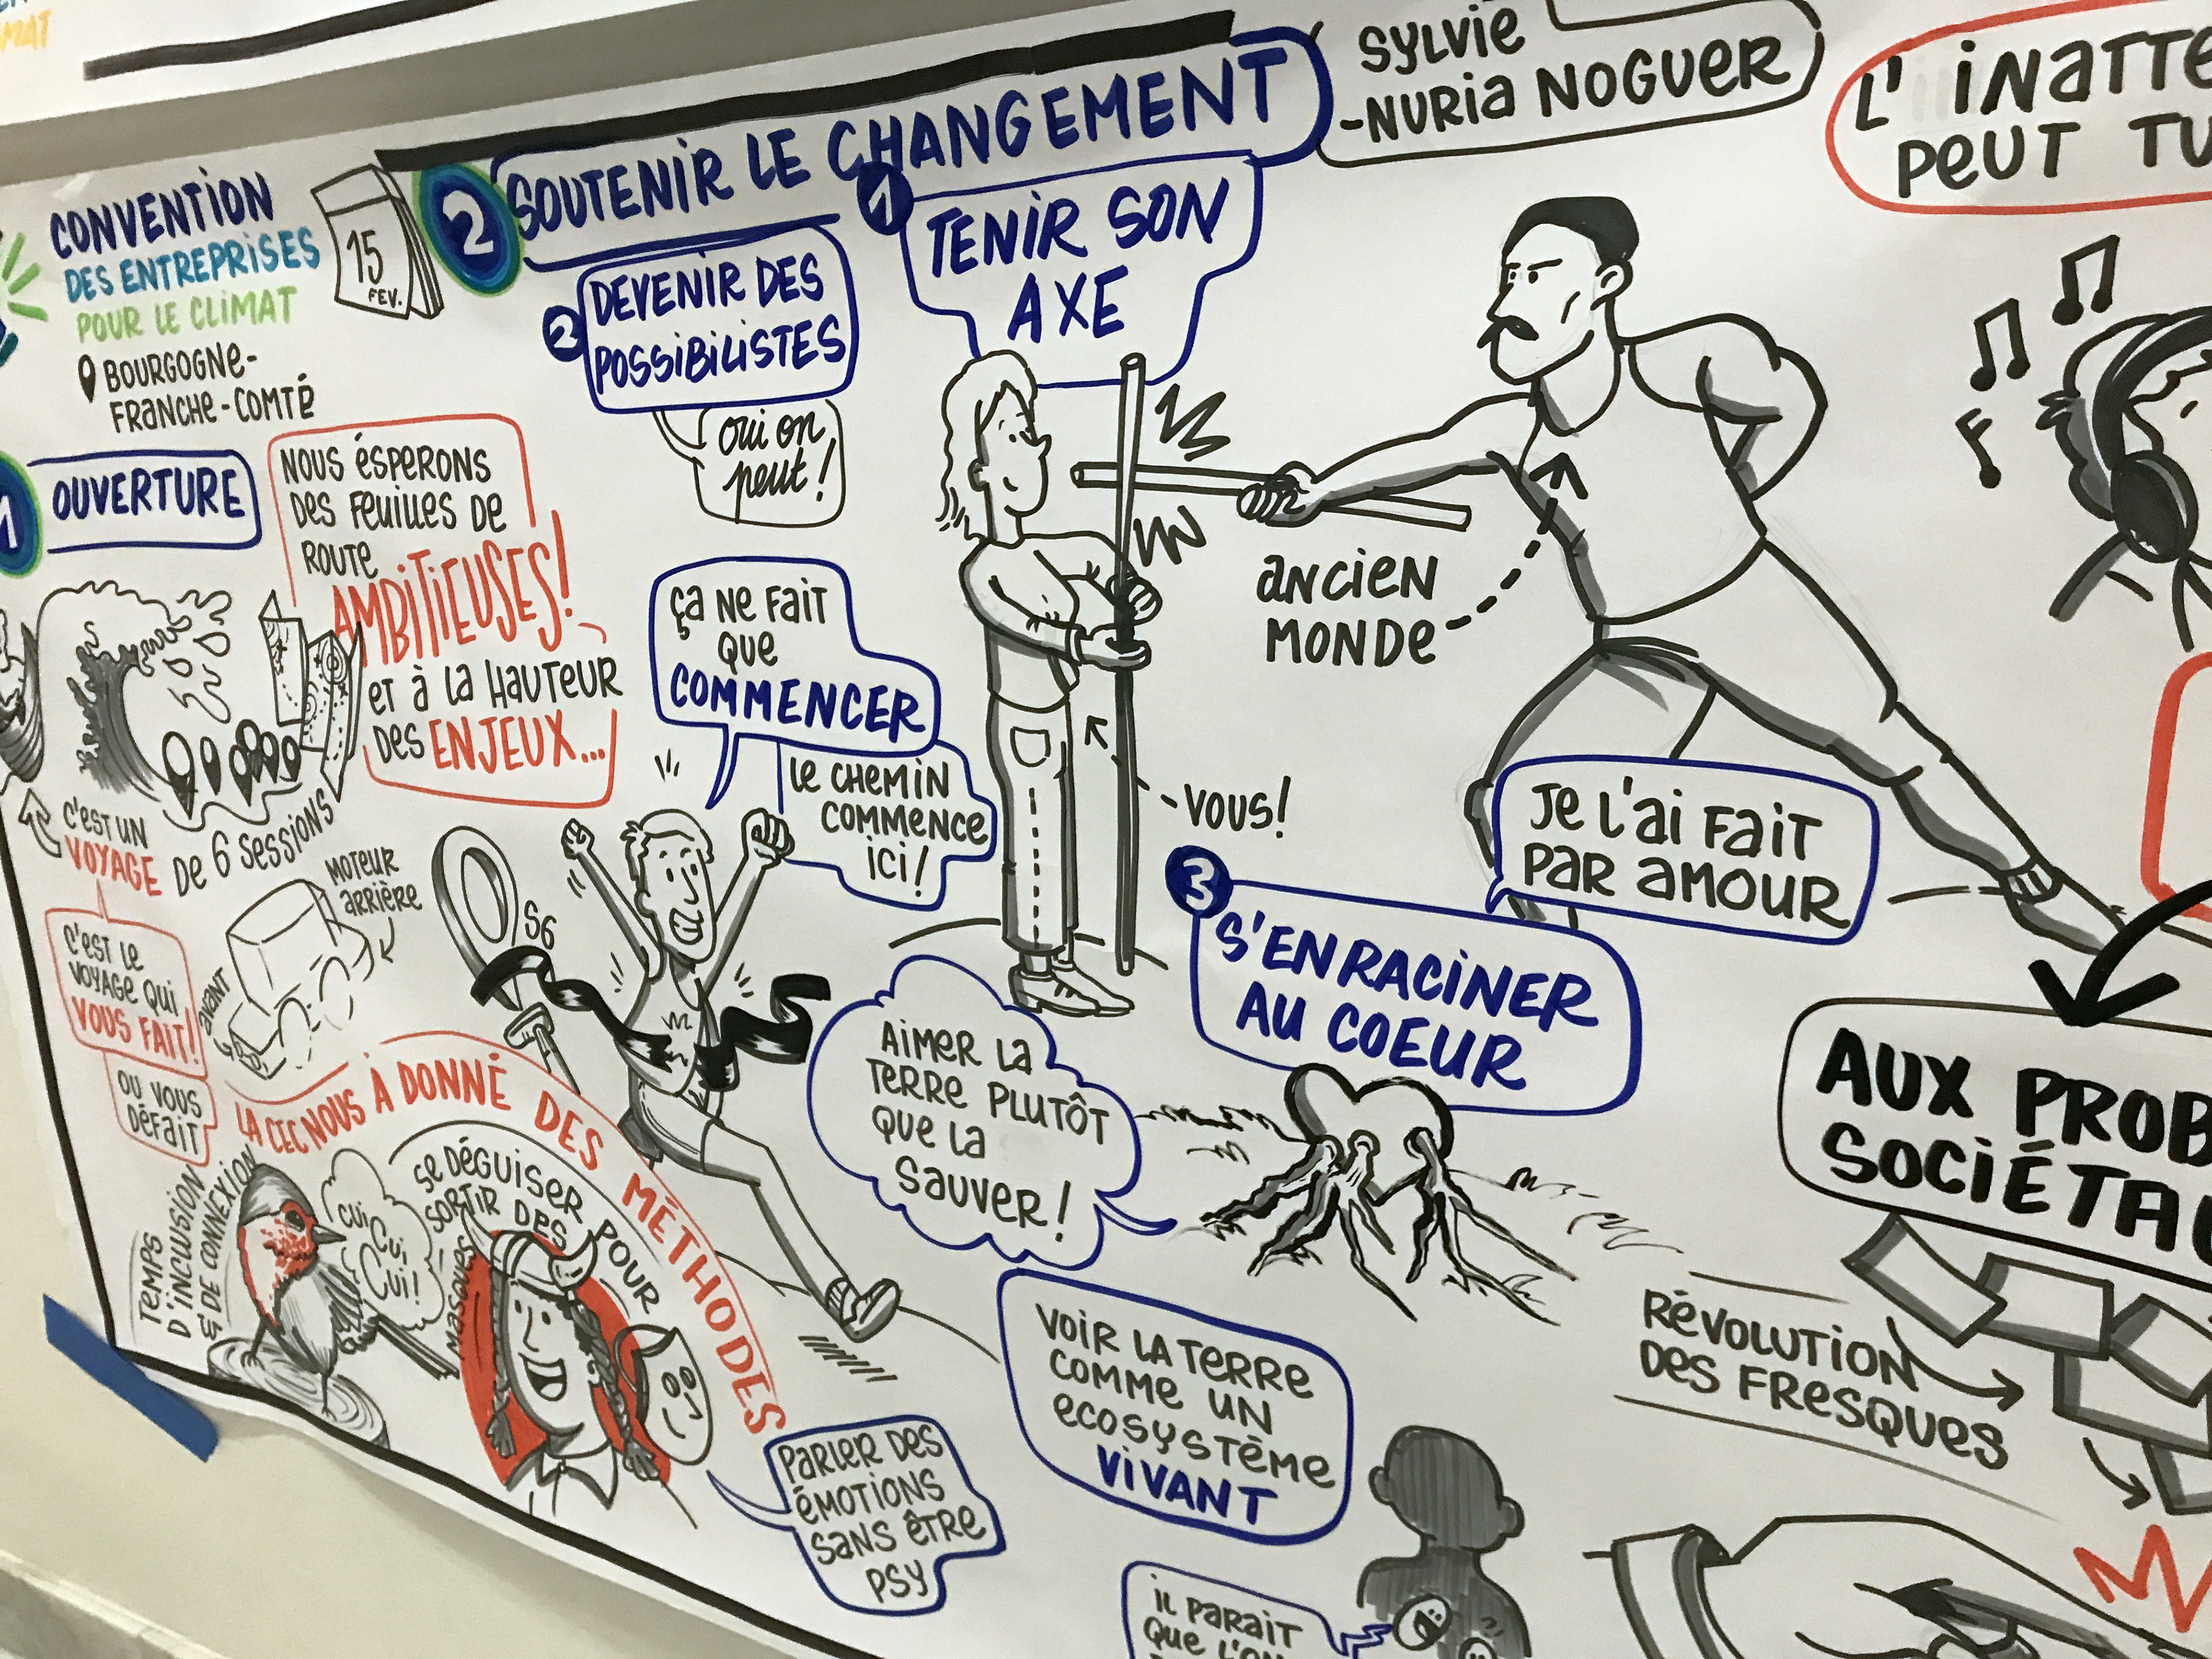 MAT
CONVENTION
DES ENTREPRISES
POUR LE CLIMAT
BOURGOGNE-
FRANCHE-COMTÉ
15
FEV.
1
OUVERTURE
NOUS ÉSPERONS
DES FEUILLES DE
ROUTE
AMBITIEUSES!
ET À LA HAUTEUR
DES ENJEUX...
C'EST UN
VOYAGE DE 6 SESSIONS
C'EST LE
VOYAGE QUI
VOUS FAIT!
OU VOUS
DÉFAIT
MOTEUR
ARRIÈRE
AVANT
LA CEC NOUS À DONNÉ DES MÉTHODES
TEMPS
D'INCLUSION
& DE CONNEXION
CUI
CUI,
CUI!
SE DÉGUISER POUR
SORTIR DES
MASQUES
PARLER DES
ÉMOTIONS
SANS ÊTRE
PSY
2 SOUTENIR LE CHANGEMENT
SYLVIE
-NURIA NOGUER
1 TENIR SON
AXE
2 DEVENIR DES
POSSIBILISTES
oui on
peut!
ÇA NE FAIT
QUE
COMMENCER
LE CHEMIN
COMMENCE
ICI!
S6
ANCIEN
MONDE
VOUS!
3 S'ENRACINER
AU COEUR
JE L'AI FAIT
PAR AMOUR
AIMER LA
TERRE PLUTÔT
QUE LA
SAUVER!
VOIR LA TERRE
COMME UN
ECOSYSTÈME
VIVANT
IL PARAIT
QUE L'ON
L'INATTE
PEUT TU
AUX PROB
SOCIÉTA
RÉVOLUTION
DES FRESQUES